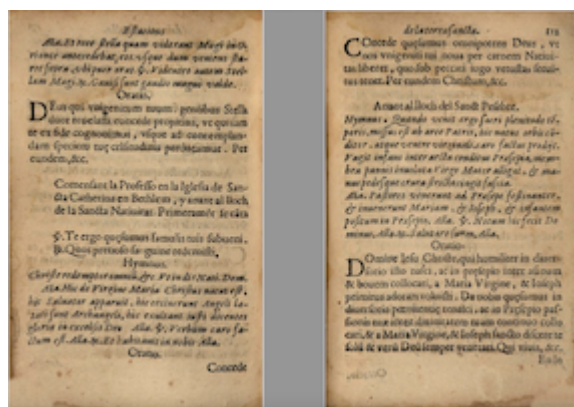 Estacions
Alla. Et ecce stella quam viderant Magi in Ori-
riente antecedebat eos, usque dum veniens sta-
ret supra, ubi puer erat. ℣. Videntes autem stel-
lam Magi. ℞. Gavisi sunt gaudio magno valde.
Oratio.
DEus qui unigenitum tuum gentibus Stella
duce revelasti concede propitius, ut qui iam
te ex fide cognovimus, usque ad contemplan-
dam speciem tuę celsitudinis perducamur. Per
eundem, &c.
Comensant la Professo en la Iglesia de San-
cta Catherina en Bethlem, y anant al lloch
de la Sancta Nativitat. Primerament se cãta
℣. Te ergo quęsumus famulis tuis subveni.
℞. Quos pretioso sanguine redemisti.
Hymnus.
Christe redemptor omniũ, &c.
Alla. Hic de Virgine Maria Christus natus est,
hic Salvator apparuit, hic cecinerunt Angeli la-
tati sunt Archangeli, hic exultant iusti dicentes
gloria in excelsis Deo. Alla. ℣. Verbum caro fa-
ctum est. Alla. ℞. Et habitavit in nobis. Alla.
Oratio.
Concede
de la terra sancta.
COncede quęsumus omnipotens Deus, ut
nos unigeniti tui nova per carnem Nativi-
tas liberet, quos sub peccati iugo vetusta servi-
tus tenet. Per eundem Christum, &c.
Anant al lloch del Sanct Presepe.
Hymnus. Quando venit ergo sacri plenitudo tẽ-
poris, missus est ab arce Patris, hic natus orbis cõ-
ditor, atque ventre virginali, caro factus prodijt.
Vagit infans inter arcta conditus Presepia, mem-
bra pannis involuta Virgo Mater alligat, & ma-
nus pedesque crura stricta cingit fascia.
Alla. Pastores venerunt ad Presepe festinantes,
& invenerunt Mariam, & Ioseph, & infantem
positum in Presepio. Alla. ℣. Notum fecit Do-
minus, Alla. ℞. Salutare suum, Alla.
Oratio.
DOmine Iesu Christe, qui humiliter in diver-
sorio isto nasci, ac in pręsepio inter asinum
& bovem collocari, a Maria Virgine, & Ioseph
primitus adorari voluisti. Da nobis quęsumus in
diversorio pœnitentię
& a Maria Virgine, & Ioseph sancto discere te
solũ & verũ Deũ semper venerari. Qui vivis, &c.